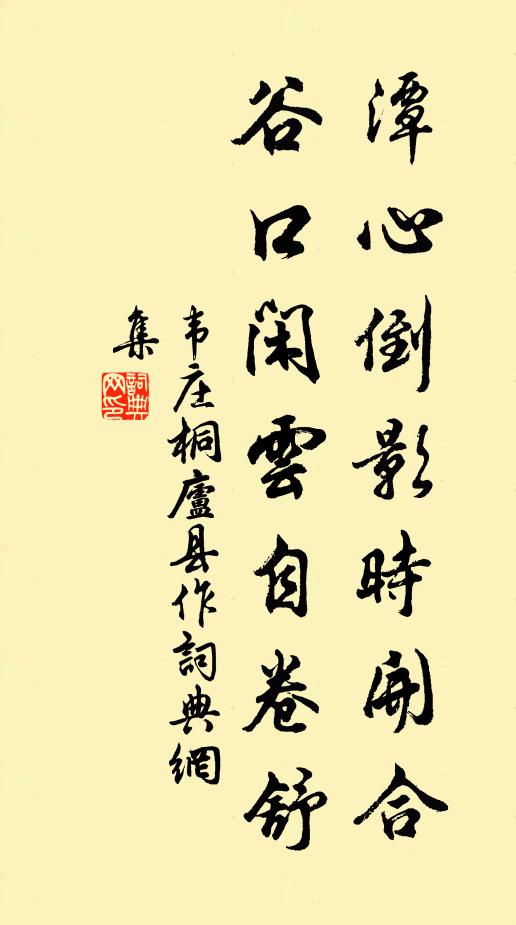 潭心倒影時開合
谷口閑雲自卷舒
韦庄桐廬县作詞典網
集
詞典网印